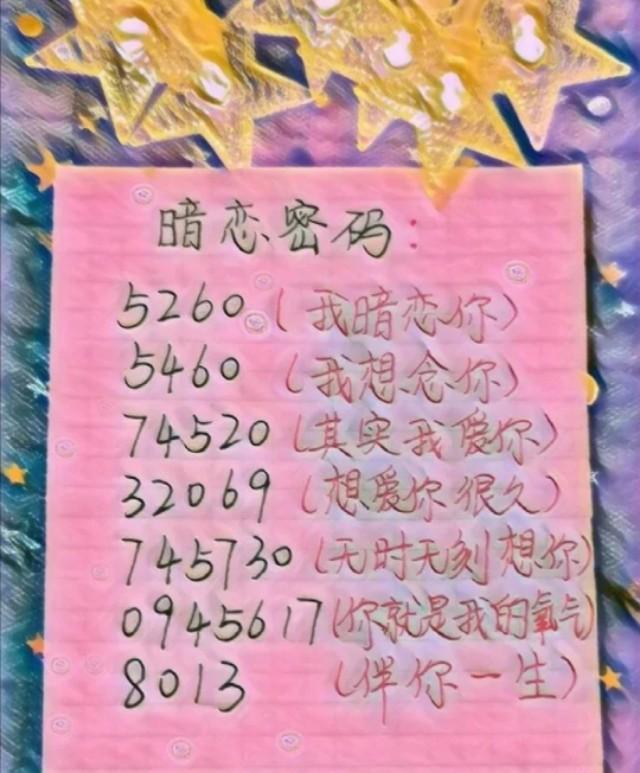 暗恋密码:
5260 (我暗恋你)
5460 (我想念你)
74520 (其实我爱你)
32069 (想爱你很久)
745730 (无时无刻想你)
0945617 (你就是我的氧气)
8013 (伴你一生)